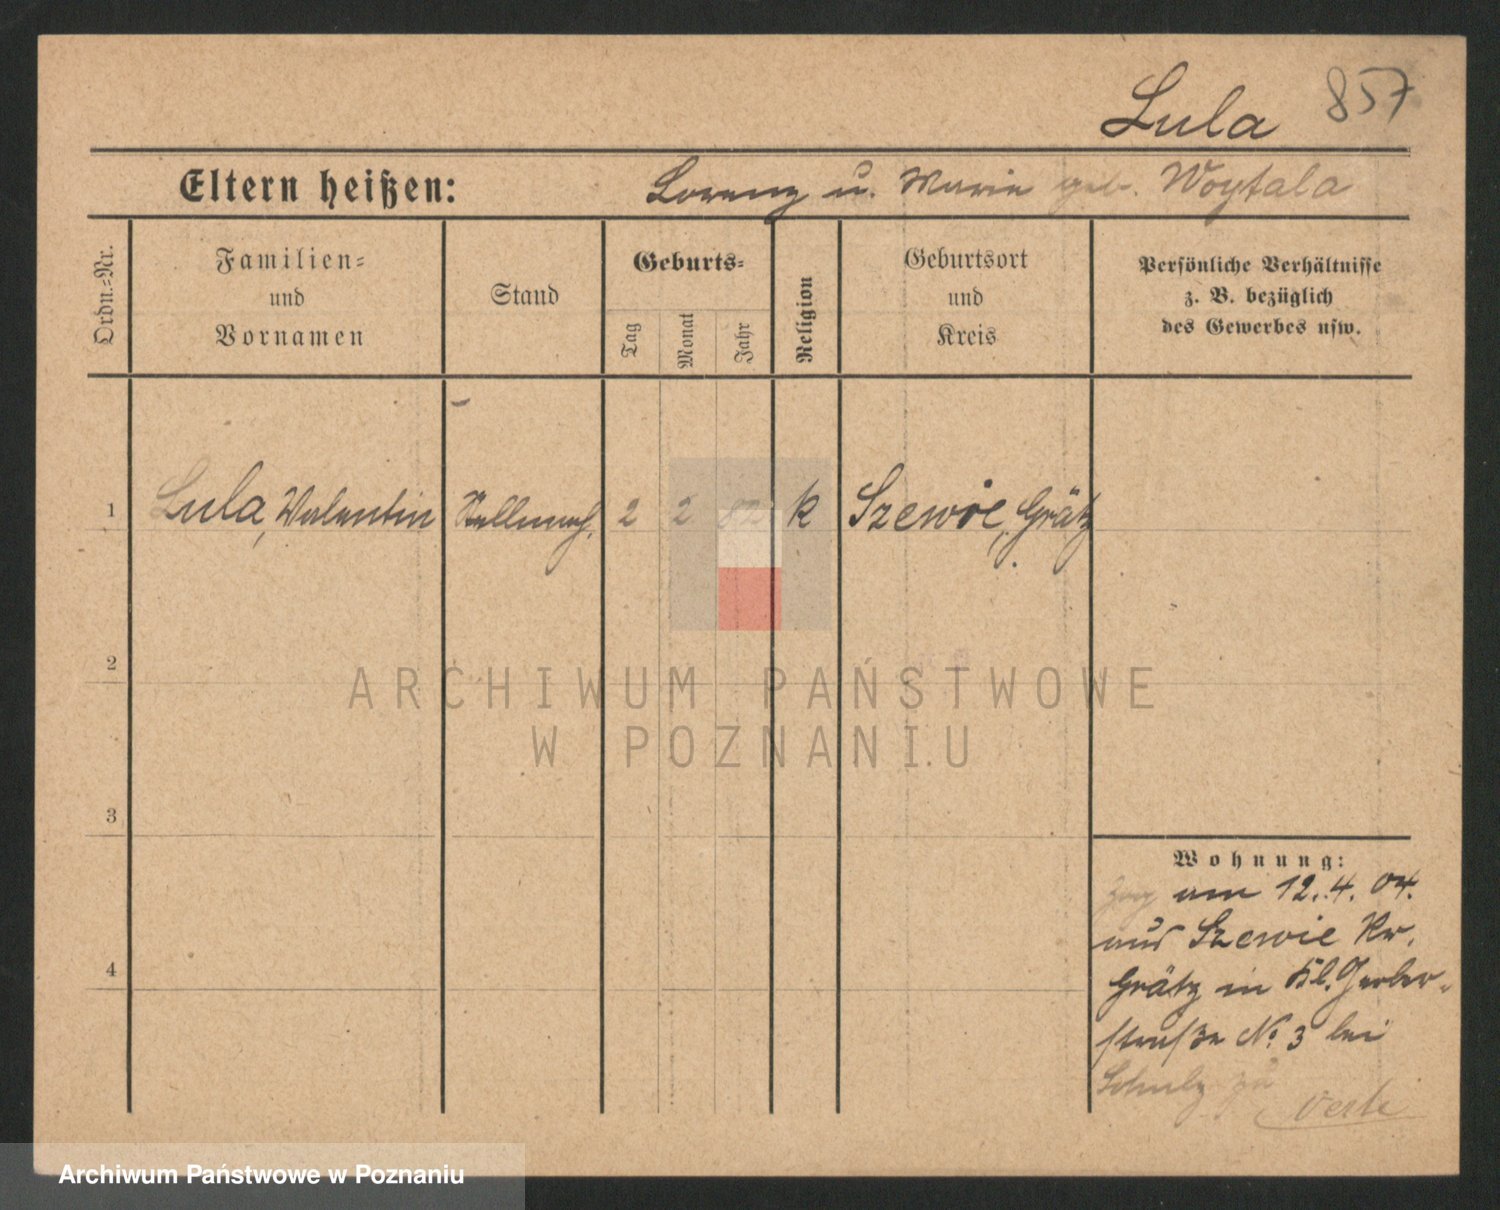 857
Lula
Eltern heißen: Lorenz u. Marie geb. Woytala
Ordn.-Nr.
Familien-
und
Vornamen
Stand
Geburts-
Tag
Monat
Jahr
Religion
Geburtsort
und
Kreis
Persönliche Verhältnisse
z. B. bezüglich
des Gewerbes usw.
1 Lula, Walentin 2 2 82 k Szewie, Grätz
2
3
4
Wohnung:
Zog am 12.4.04.
aus Szewie Kr.
Grätz in Kl. Gerber-
straße No 3 bei
Schulz zu
ARCHIWUM PAŃSTWOWE
W POZNANIU
Archiwum Państwowe w Poznaniu